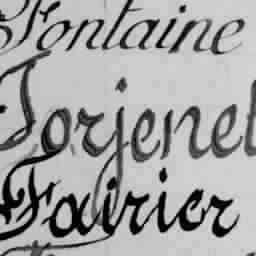 Fontaine
Torjenel
Fairier